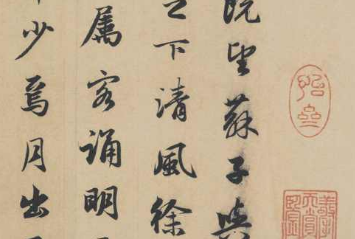 既望蘇子與
之下清風徐
属客誦明
少焉月出